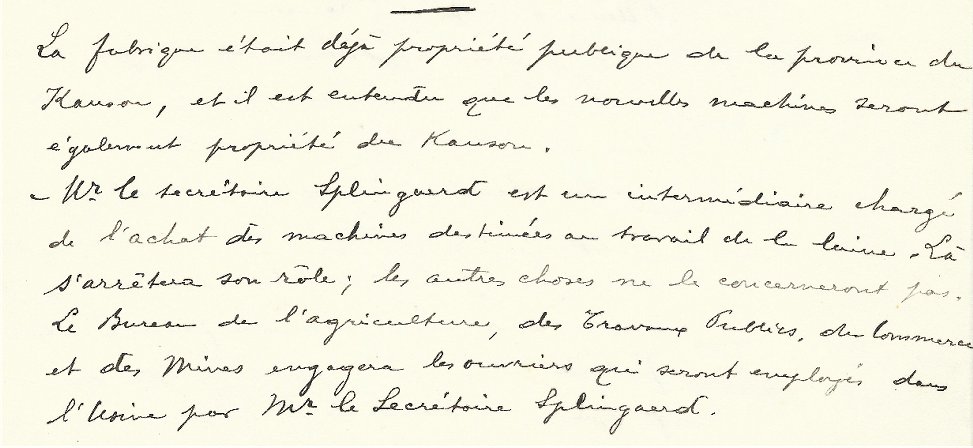 La fabrique était déjà propriété publique de la province du
Kansou, et il est entendu que les nouvelles machines seront
également propriété du Kansou.
- Mr le secrétaire Splingaerd est un intermédiaire chargé
de l'achat des machines destinées au travail de la laine. Là
s'arrêtera son rôle ; les autres choses ne le concerneront pas.
Le Bureau de l'agriculture, des Travaux Publics, du Commerce
et des Mines engagera les ouvriers qui seront employés dans
l'Usine par Mr le Secrétaire Splingaerd.